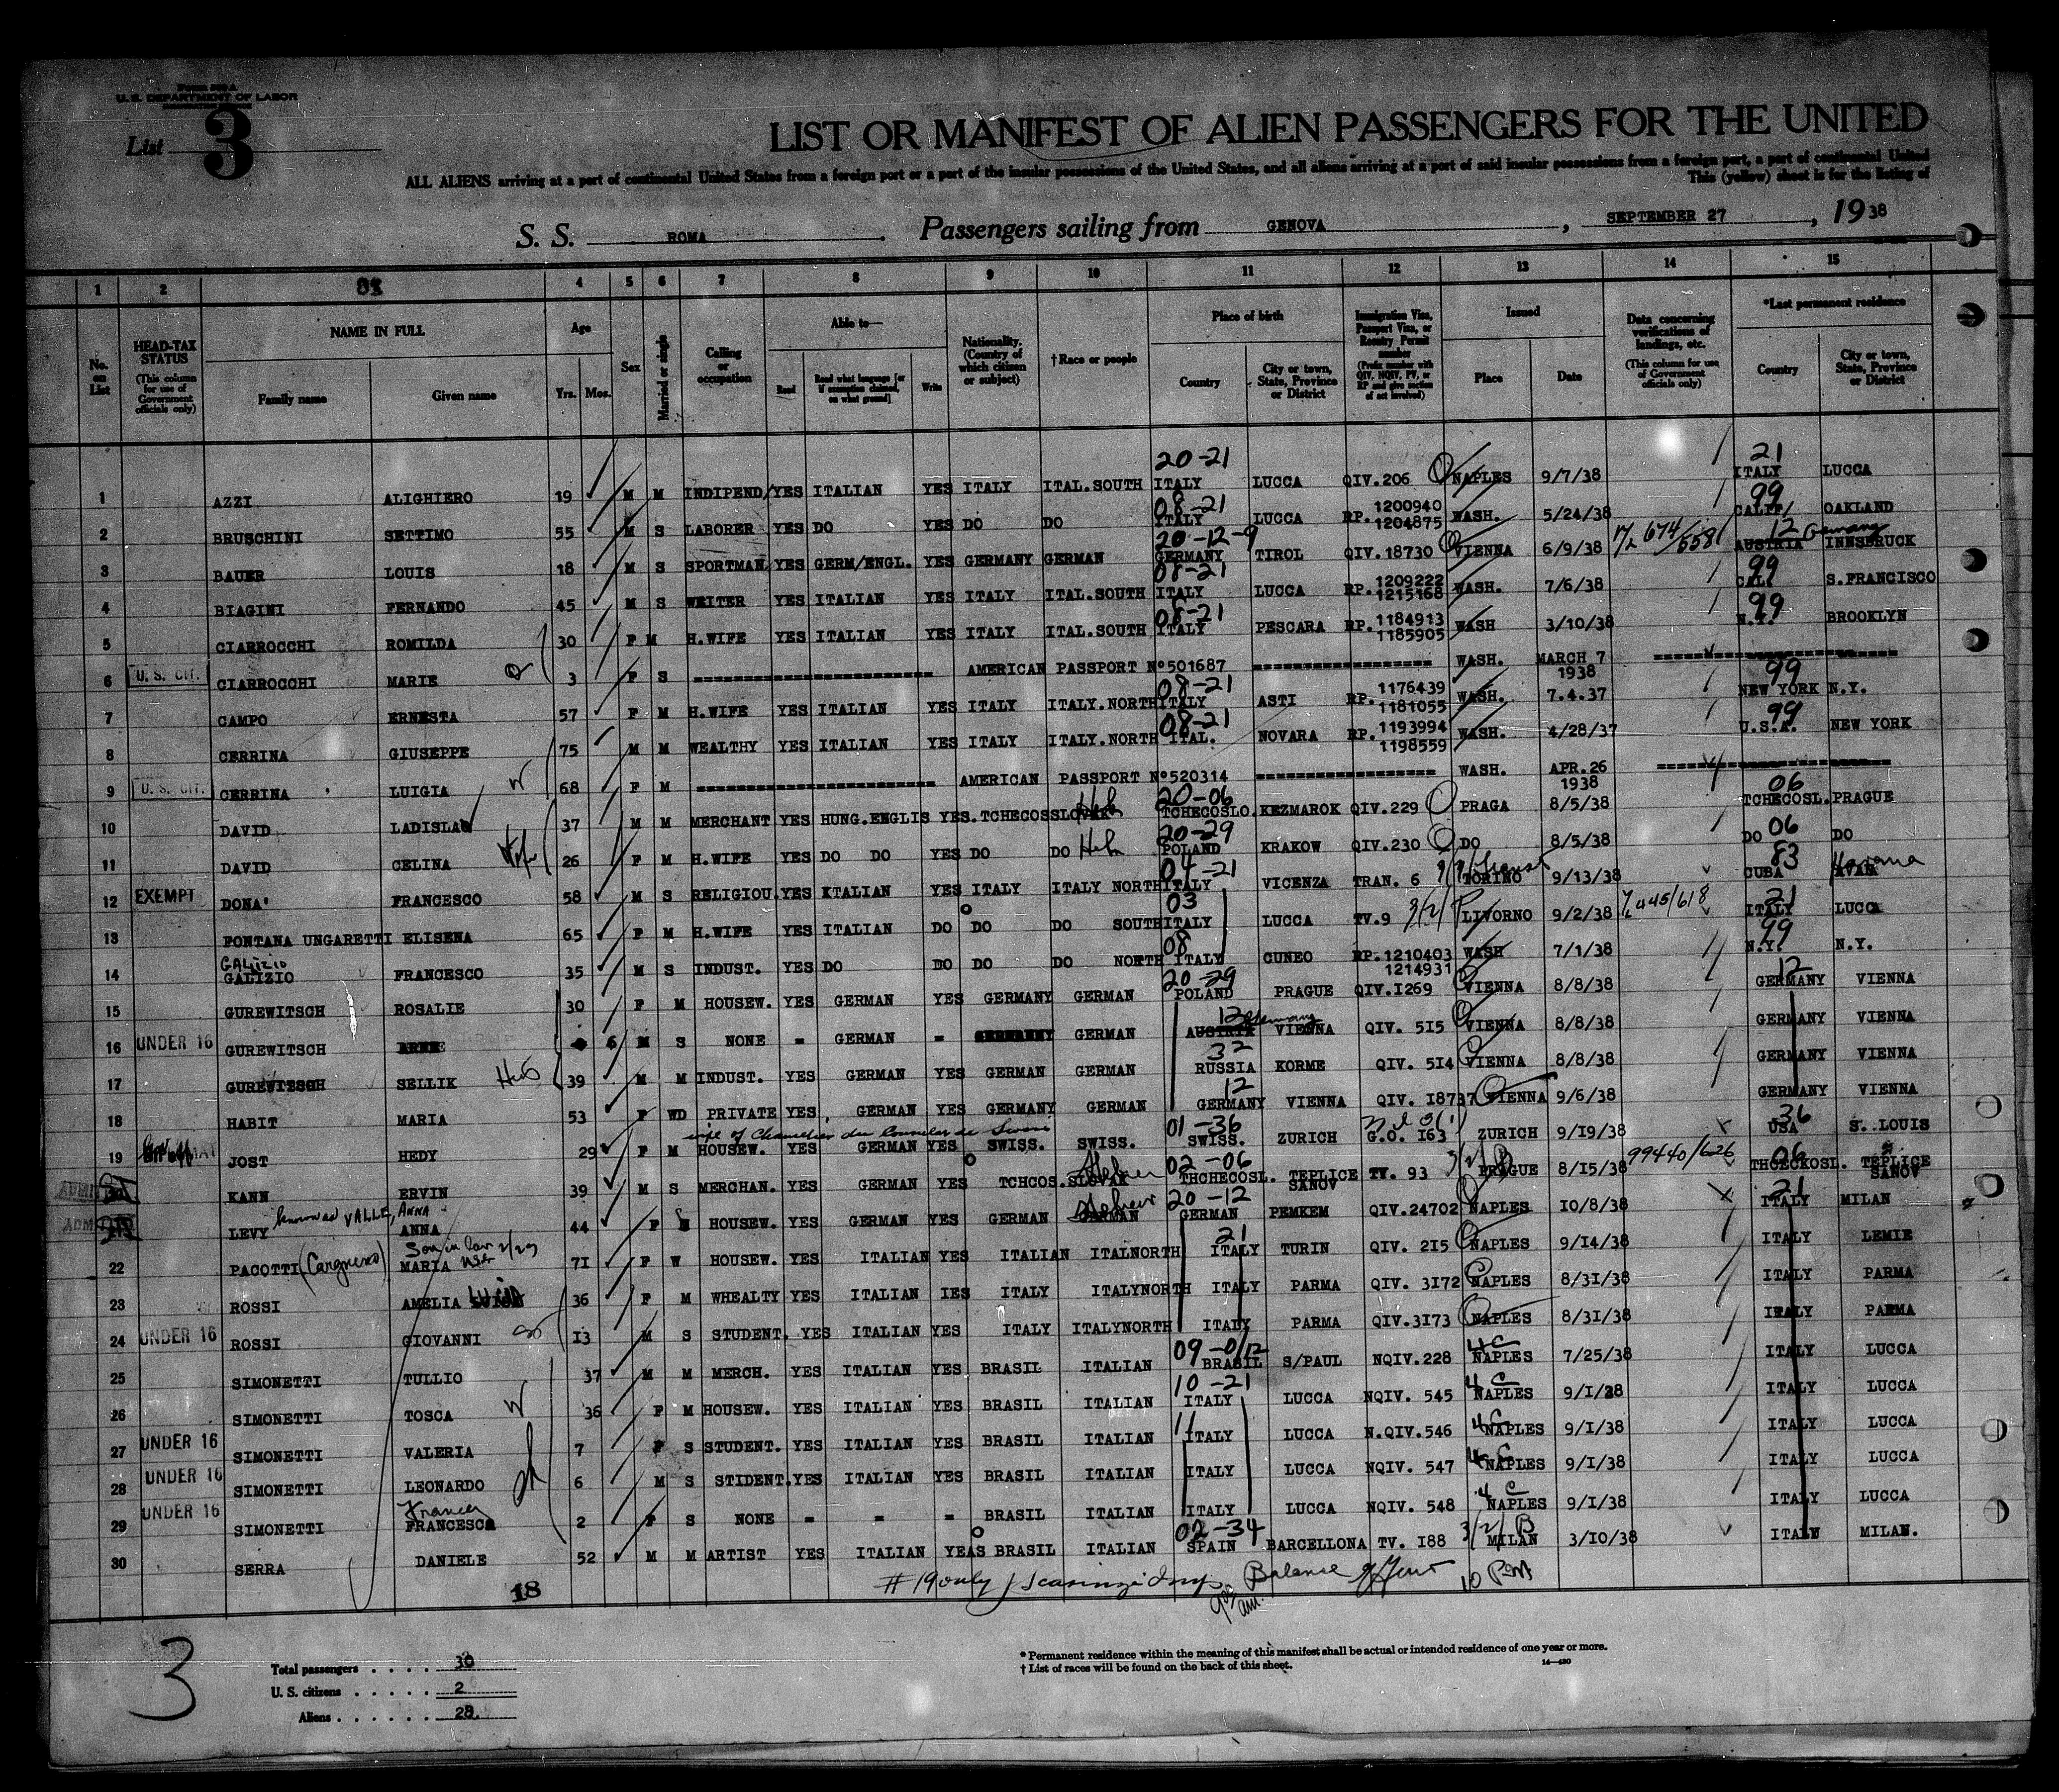 U. S. DEPARTMENT OF LABOR
List 3
LIST OR MANIFEST OF ALIEN PASSENGERS FOR THE UNITED
ALL ALIENS arriving at a port of continental United States from a foreign port or a port of the insular possessions of the United States, and all aliens arriving at a port of said insular possessions from a foreign port, a port of continental United
This (yellow) sheet is for the listing of
S. S. ROMA Passengers sailing from GENOVA, SEPTEMBER 27, 1938
1 2 4 5 6 7 8 9 10 11 12 13 14 15
No. on List
HEAD-TAX STATUS (This column for use of Government officials only)
NAME IN FULL Family name Given name
Age Yrs. Mos.
Sex
Married or single
Calling or occupation
Able to— Read Read what language [or if exemption claimed, on what ground] Write
Nationality. (Country of which citizen or subject)
†Race or people
Place of birth Country City or town, State, Province or District
Immigration Visa, Passport Visa, or Reentry Permit number (Prefix number with QIV, NQIV, PV, or RP and give section of act involved)
Issued Place Date
Data concerning verifications of landings, etc. (This column for use of Government officials only)
*Last permanent residence Country City or town, State, Province or District
20-21 21
1 AZZI ALIGHIERO 19 M M INDIPEND YES ITALIAN YES ITALY ITAL.SOUTH ITALY LUCCA QIV.206 NAPLES 9/7/38 ITALY LUCCA
08-21 99
2 BRUSCHINI SETTIMO 55 M S LABORER YES DO YES DO DO ITALY LUCCA RP. 1200940 1204875 WASH. 5/24/38 CALIF/ OAKLAND
20-12-9 12 Germany
3 BAUER LOUIS 18 M S SPORTMAN YES GERM/ENGL. YES GERMANY GERMAN GERMANY TIROL QIV.18730 VIENNA 6/9/38 674/558 AUSTRIA INNSBRUCK
08-21 99
4 BIAGINI FERNANDO 45 M S WRITER YES ITALIAN YES ITALY ITAL.SOUTH ITALY LUCCA RP. 1209222 1215168 WASH. 7/6/38 CAL. S.FRANCISCO
08-21 99
5 CIARROCCHI ROMILDA 30 F M H.WIFE YES ITALIAN YES ITALY ITAL.SOUTH ITALY PESCARA RP. 1184913 1185905 WASH 3/10/38 N.Y. BROOKLYN
6 U. S. CIT. CIARROCCHI MARIE 3 F S AMERICAN PASSPORT Nº501687 WASH. MARCH 7 1938
08-21 99
7 CAMPO ERNESTA 57 F M H.WIFE YES ITALIAN YES ITALY ITALY.NORTH ITALY ASTI RP. 1176439 1181055 WASH. 7.4.37 NEW YORK N.Y.
08-21 99
8 CERRINA GIUSEPPE 75 M M WEALTHY YES ITALIAN YES ITALY ITALY.NORTH ITAL. NOVARA RP. 1193994 1198559 WASH. 4/28/37 U.S.A. NEW YORK
9 U. S. CIT. CERRINA LUIGIA W 68 F M AMERICAN PASSPORT Nº520314 WASH. APR.26 1938
20-06 06
10 DAVID LADISLAW 37 M M MERCHANT YES HUNG.ENGLIS YES. TCHECOSSLOVAK Heb TCHECOSLO. KEZMAROK QIV.229 PRAGA 8/5/38 TCHECOSL. PRAGUE
20-29 06
11 DAVID CELINA Wife 26 F M H.WIFE YES DO DO YES DO DO Heb POLAND KRAKOW QIV.230 DO 8/5/38 DO DO
04-21 83 Havana
12 EXEMPT DONA' FRANCESCO 58 M S RELIGIOU. YES ITALIAN YES ITALY ITALY NORTH ITALY VICENZA TRAN. 6 TORINO 9/13/38 CUBA AVAN
03 21
13 FONTANA UNGARETTI ELISENA 65 F M H.WIFE YES ITALIAN DO DO DO SOUTH ITALY LUCCA TV.9 3/2/ LIVORNO 9/2/38 445/618 ITALY LUCCA
GALIZIO 08 99
14 GALIZIO FRANCESCO 35 M S INDUST. YES DO DO DO DO NORTH ITALY CUNEO RP. 1210403 1214931 WASH 7/1/38 N.Y. N.Y.
20-29 12
15 GUREWITSCH ROSALIE 30 F M HOUSEW. YES GERMAN YES GERMANY GERMAN POLAND PRAGUE QIV.I269 VIENNA 8/8/38 GERMANY VIENNA
12 Germany
16 UNDER 16 GUREWITSCH 6 M S NONE - GERMAN - GERMAN AUSTRIA VIENNA QIV. 5I5 VIENNA 8/8/38 GERMANY VIENNA
32
17 GUREWITSCH SELLIK 39 M M INDUST. YES GERMAN YES GERMAN GERMAN RUSSIA KORME QIV. 5I4 VIENNA 8/8/38 GERMANY VIENNA
12
18 HABIT MARIA 53 F WD PRIVATE YES. GERMAN YES GERMANY GERMAN GERMANY VIENNA QIV. I8737 VIENNA 9/6/38 GERMANY VIENNA
01-36 36
19 JOST HEDY 29 F M HOUSEW. YES GERMAN YES SWISS. SWISS. SWISS. ZURICH G.O. I63 ZURICH 9/19/38 USA S. LOUIS
Hebrew 02-06 06
KANN ERVIN 39 M S MERCHAN. YES GERMAN YES TCHCOS. SLOVAK THCHECOSL. TEPLICE SANOV TV. 93 PRAGUE 8/15/38 99440/626 THCECKOSL. TEPLICE SANOV
known as VALLE, ANNA Hebrew 20-12 21
LEVY ANNA 44 F S HOUSEW. YES GERMAN YES GERMAN GERMAN GERMAN PEMKEM QIV.24702 NAPLES IO/8/38 ITALY MILAN
Son in law 21
22 PACOTTI (Cargnero) MARIA 7I F W HOUSEW. YES ITALIAN YES ITALIAN ITALNORTH ITALY TURIN QIV. 2I5 NAPLES 9/I4/38 ITALY LEMIE
23 ROSSI AMELIA LUISA 36 F M WHEALTY YES ITALIAN IES ITALY ITALYNORTH ITALY PARMA QIV. 3I72 NAPLES 8/3I/38 ITALY PARMA
24 UNDER 16 ROSSI GIOVANNI I3 M S STUDENT. YES ITALIAN YES ITALY ITALYNORTH ITALY PARMA QIV.3I73 NAPLES 8/3I/38 ITALY PARMA
09-0/12 4 C
25 SIMONETTI TULLIO 37 M M MERCH. YES ITALIAN YES BRASIL ITALIAN BRASIL S/PAUL NQIV.228 NAPLES 7/25/38 ITALY LUCCA
10-21 4 C
26 SIMONETTI TOSCA W 36 F M HOUSEW. YES ITALIAN YES BRASIL ITALIAN ITALY LUCCA NQIV. 545 NAPLES 9/I/38 ITALY LUCCA
11 4 C
27 UNDER 16 SIMONETTI VALERIA 7 F S STUDENT. YES ITALIAN YES BRASIL ITALIAN ITALY LUCCA N.QIV.546 NAPLES 9/I/38 ITALY LUCCA
4 C
28 UNDER 16 SIMONETTI LEONARDO ch 6 M S STIDENT. YES ITALIAN YES BRASIL ITALIAN ITALY LUCCA NQIV. 547 NAPLES 9/I/38 ITALY LUCCA
4 C
29 UNDER 16 SIMONETTI FRANCESCA 2 F S NONE - - - BRASIL ITALIAN ITALY LUCCA NQIV. 548 NAPLES 9/I/38 ITALY LUCCA
02-34 3/2/ B
30 SERRA DANIELE 52 M M ARTIST YES ITALIAN YEAS BRASIL ITALIAN SPAIN BARCELLONA TV. I88 MILAN 3/IO/38 ITALY MILAN.
18
3
Total passengers . . . . 30
U. S. citizens . . . . . 2
Aliens . . . . . . 28
* Permanent residence within the meaning of this manifest shall be actual or intended residence of one year or more.
† List of races will be found on the back of this sheet.
14—430